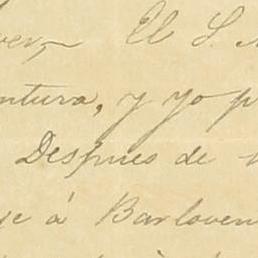 ver, El S.
ntura, y yo p
Despues de
je á Barloven